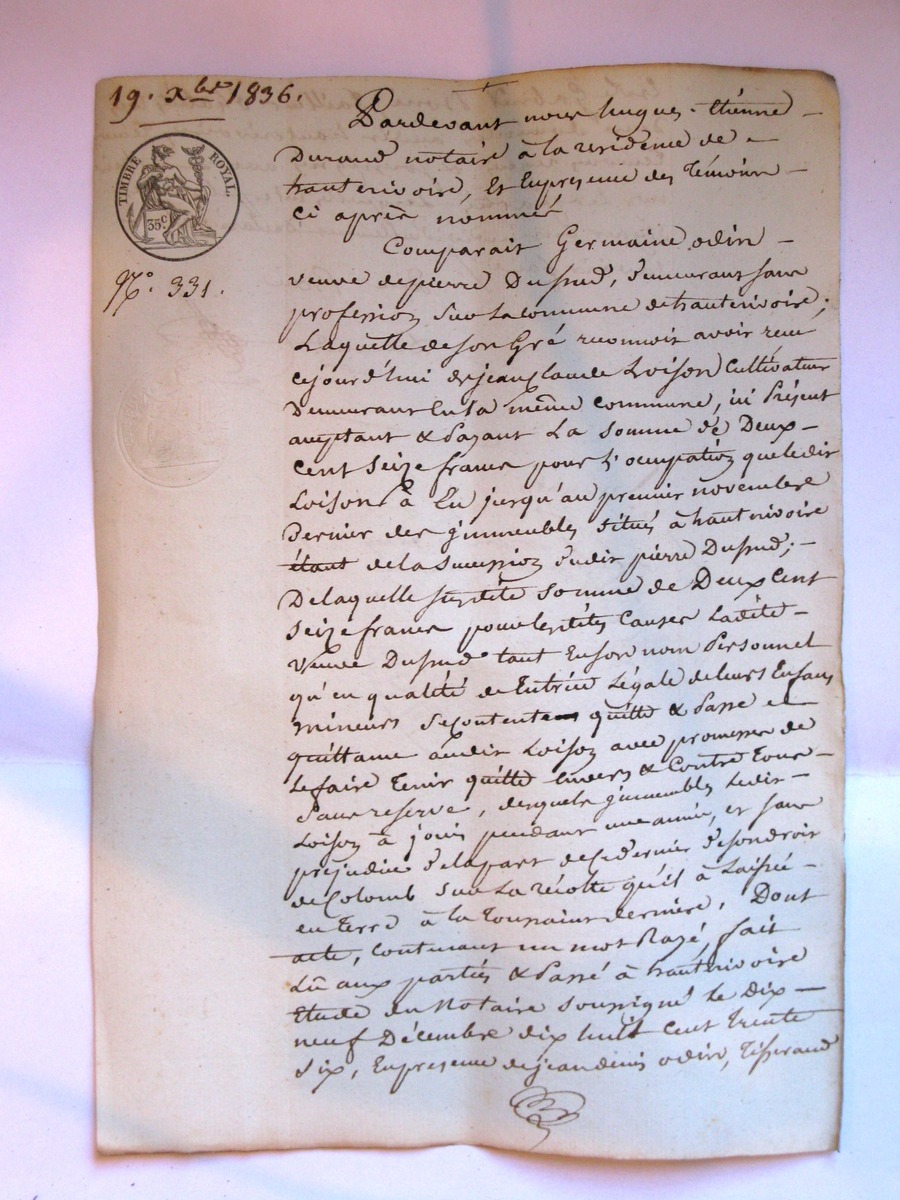 19. xbre 1836.
TIMBRE ROYAL.
35c
No. 331.
Pardevant nous hugues-Etienne
Durand notaire à la résidence de
hauterivoire, Et En présence des Témoins
Ci après nommés
Comparait Germaine odin
veuve de pierre Dussud, demeurant sans
profession sur la commune de hauterivoire;
Laquelle de son Gré reconnoit avoir reçu
cejourd'hui de jean claude Loison Cultivateur
Demeurant En la même commune, ici Présent
acceptant & Payant La somme de Deux
cent seize francs pour L'occupation que ledit
Loison à Eu jusqu'au premier novembre
dernier des jmmeubles situés à hauterivoire
étant de la succession dudit pierre Dussud;
De laquelle susdite somme de Deux Cent
seize francs pour les dites Causes Ladite
veuve Dussud tant En son nom Personnel
qu'en qualité de Tutrice Légale de leurs Enfans
mineurs se contente quitte & Passe
quittance audit Loison avec promesse de
Le faire Tenir quitte Envers & Contre Tous
sans réserve, desquels jmmeubles Ledit
Loison à joui pendant une année, et sans
préjudice de la part de ce dernier de son droit
de Colomb sur La récolte qu'il à Laissée
en Terre à la Toussaint dernière. Dont
acte, Contenant un mot Rayé, fait
Lû aux parties & Passé à hauterivoire
Etude du Notaire soussigné Le Dix
neuf Décembre dix huit cent Trente
six, En présence de jean denis odin, Tisserand